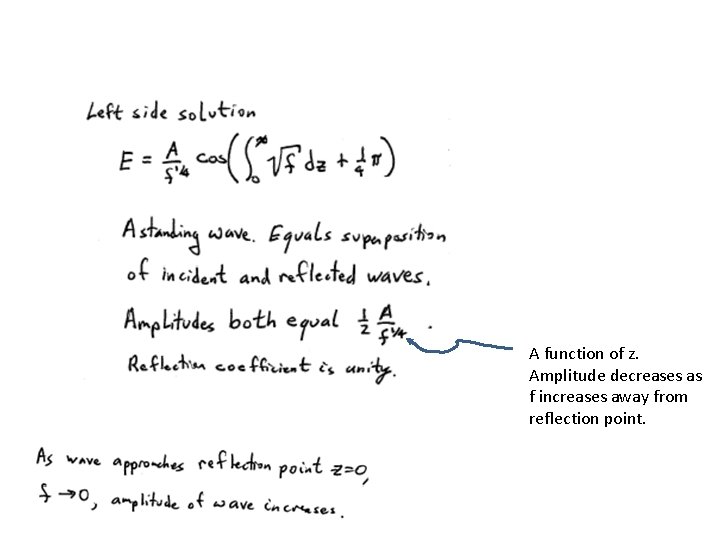 Left side solution
E = A/f^1/4 cos(∫_0^∞ √f dz + 1/4 π)
A standing wave. Equals superposition
of incident and reflected waves.
Amplitudes both equal 1/2 A/f^1/4 .
Reflection coefficient is unity.
A function of z.
Amplitude decreases as
f increases away from
reflection point.
As wave approaches reflection point z=0,
f → 0, amplitude of wave increases.